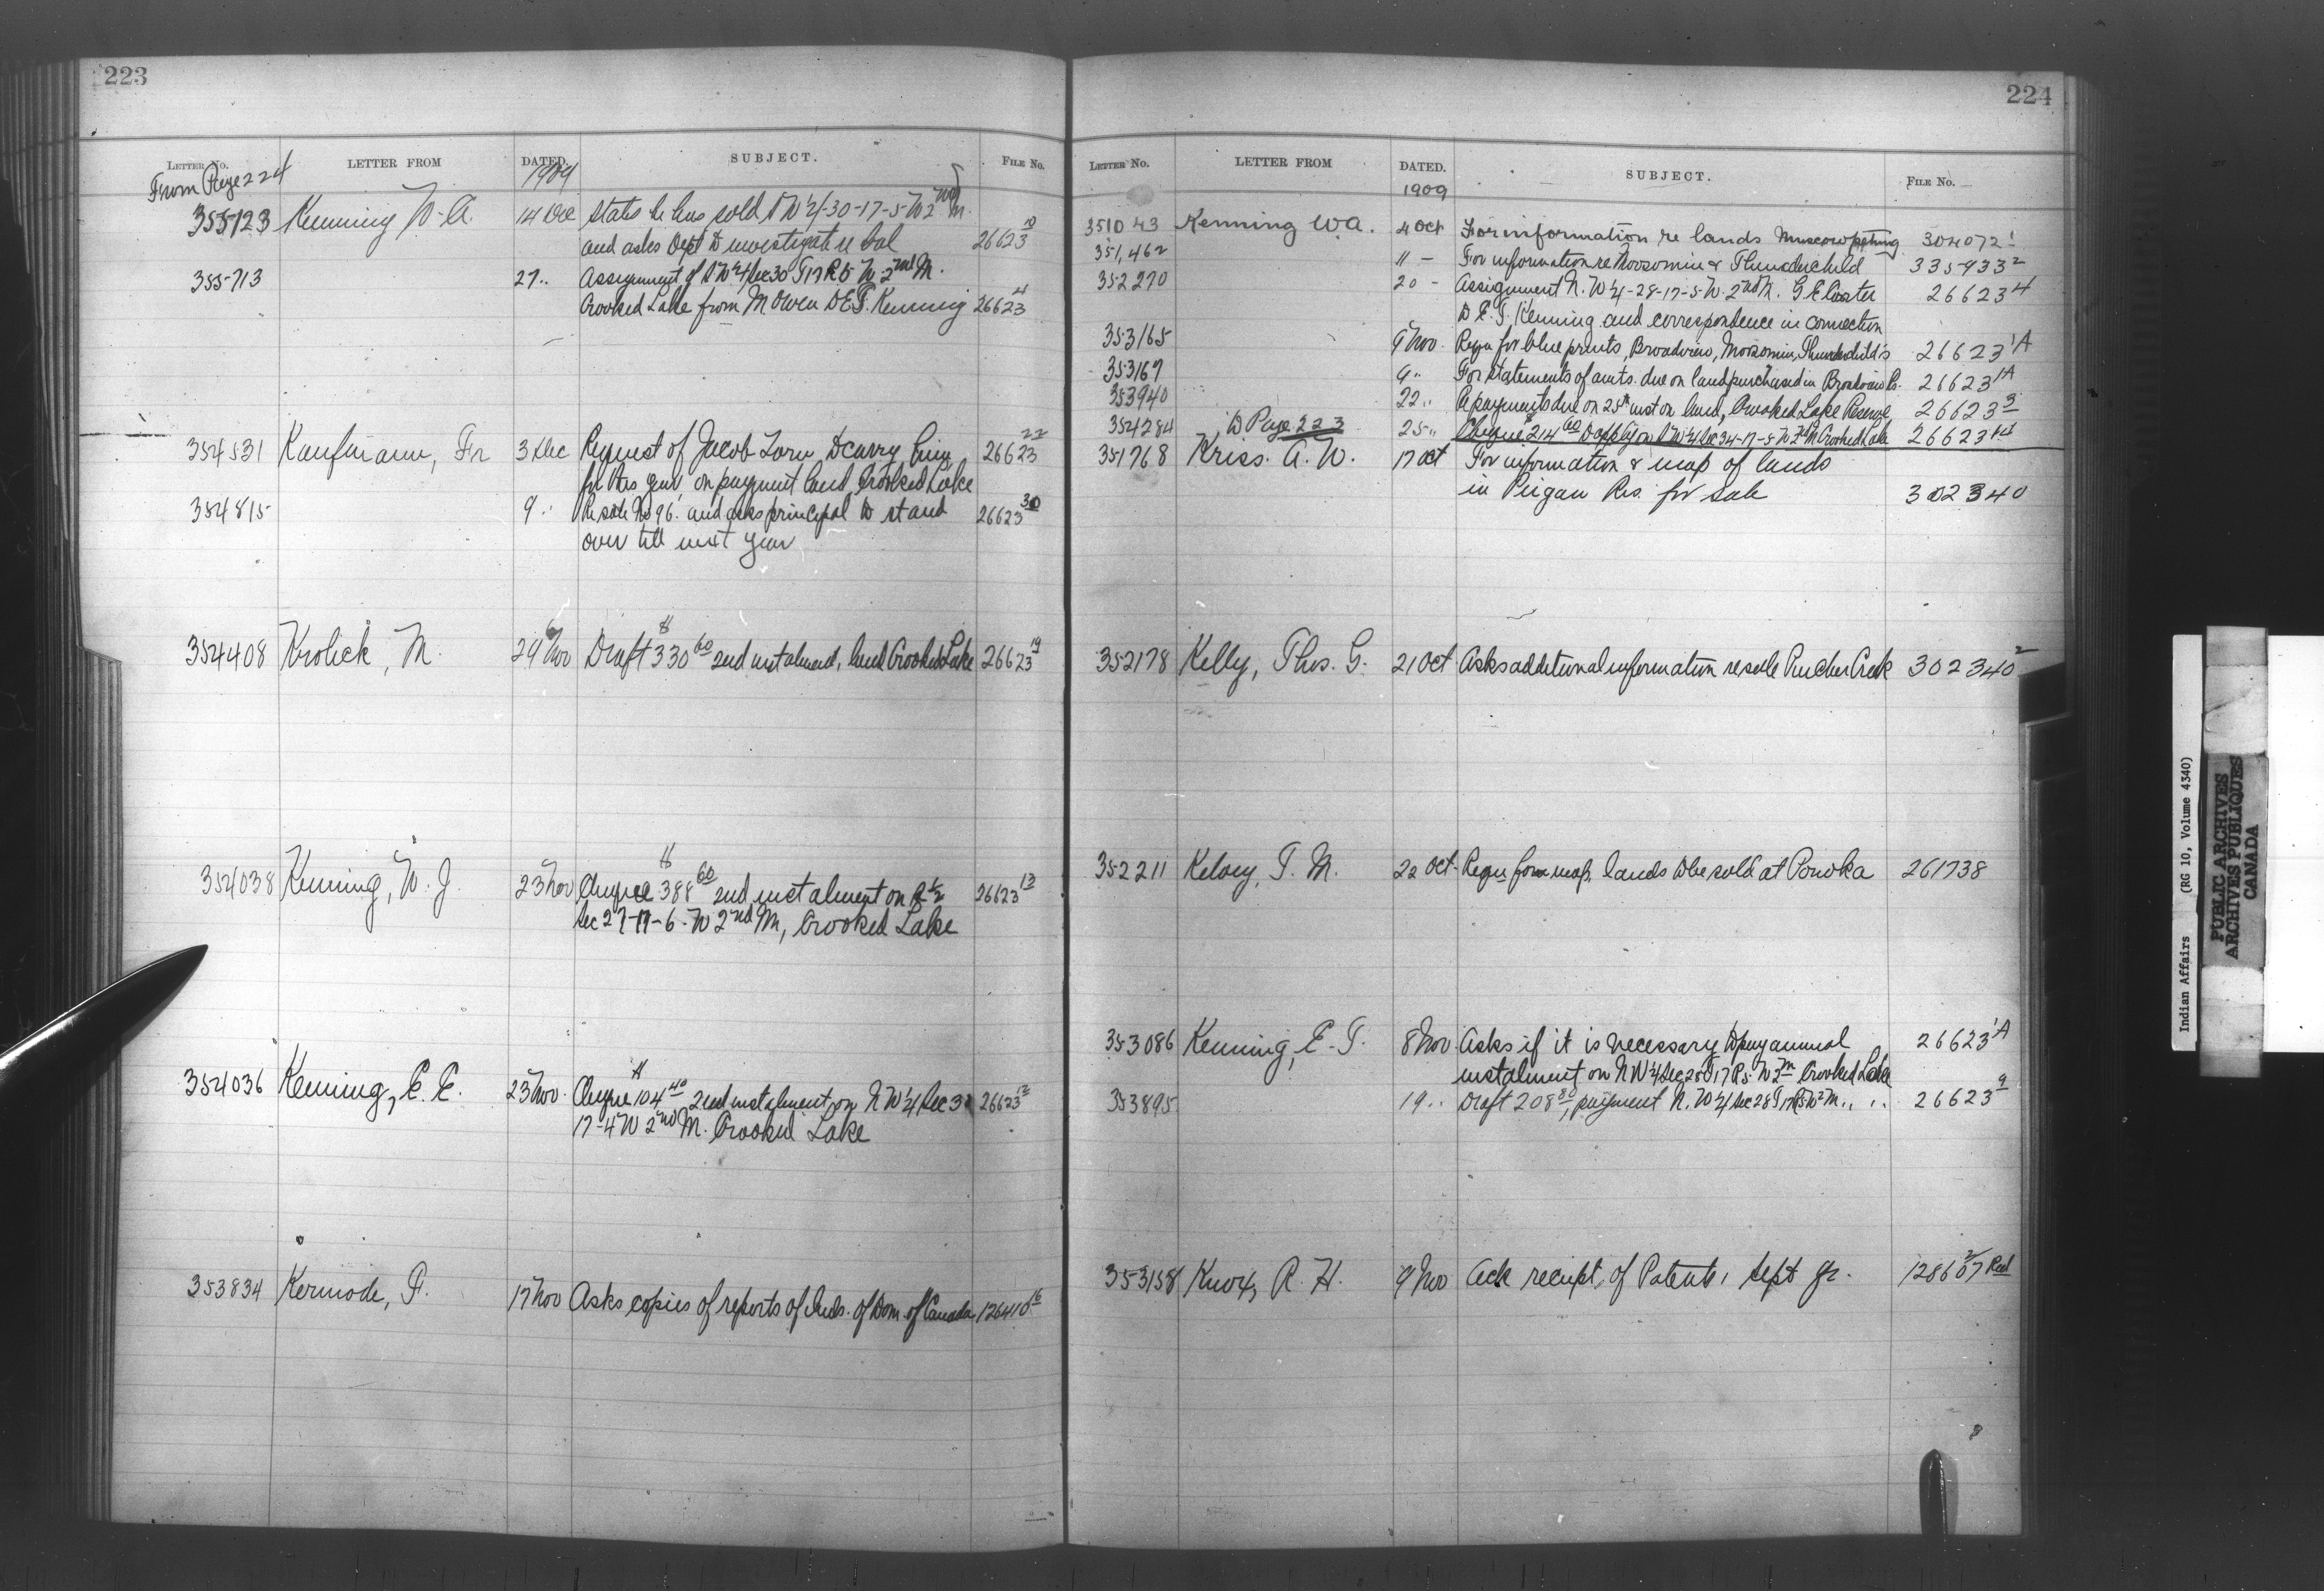 223
LETTER NO. LETTER FROM DATED. SUBJECT. FILE NO.
From Page 224 1909
355123 Kenning W. A. 14 Dec States he has sold N W 1/4-30-17-5-W 2nd M.
and asks Dept to investigate re bal 26623 10
355713 27 " Assignment of N W 1/4 Sec 30 T 17 R 5 W 2nd M.
Crooked Lake from M Owen to E. T. Kenning 26623 4
354531 Kaufmann, Fr 3 Dec Request of Jacob Lorn to carry him 26623 22
for this year on payment land Crooked Lake
354815 9 " Re sale No 96 and asks principal to stand 26623 30
over till next year
354408 Krolick, M. 29 Nov Draft $330 60 2nd instalment, land Crooked Lake 26623 19
354038 Kenning, W. J. 23 Nov Cheque $388 60 2nd instalment on 1/2 26623 13
Sec 27-17-6-W 2nd M, Crooked Lake
354036 Kenning, E. E. 23 Nov. Cheque $104 40 2nd instalment on N W 1/4 Sec 32 26623 12
17-4 W 2nd M. Crooked Lake
353834 Kermode, F. 17 Nov Asks copies of reports of Inds. of Dom. of Canada 126410 16
224
LETTER NO. LETTER FROM DATED. SUBJECT. FILE NO.
1909
351043 Kenning W A. 4 Oct For information re lands Muscowpetung 304072 1
351,462 11 - For information re Moosomin & Thunderchild 335933 2
352270 20 - Assignment N. W 1/4-28-17-5-W. 2nd M. G. E.
to E. T. Kenning and correspondence in connection 26623 4
353165 9 Nov. Requ for blue prints, Broadview, Moosomin, Thunderchild's 26623 1A
353167 9 " For statements of amts. due on land purchased in Broadview Rs. 26623 1A
353940 22 " Re payments due on 25th inst on land, Crooked Lake Reserve 26623 3
354284 to Page 223 25 " Cheque $214 60 to apply on N W 1/4 Sec 34-17-5 W 2nd M Crooked Lake 26623 14
351768 Kriss. A. W. 17 Oct For information & map of lands
in Peigan Res. for sale 302340
352178 Kelly, Thos. G. 21 Oct Asks additional information re sale Pincher Creek 302340 2
352211 Kelsey, T. M. 22 Oct. Requ for map, lands to be sold at Ponoka 261738
353086 Kenning, E. T. 8 Nov. Asks if it is necessary to pay annual 26623 1A
instalment on N W 1/4 Sec 28 T 17 R 5 W 2nd M Crooked Lake
353895 19 " Draft 208 80, payment N. W 1/4 Sec 28 T 17 R 5 W 2 M " " 26623 9
353158 Knox, R. H. 9 Nov Ack receipt of Patent, Sept gr. 128607 Rod
Indian Affairs (RG 10, Volume 4340)
PUBLIC ARCHIVES
ARCHIVES PUBLIQUES
CANADA